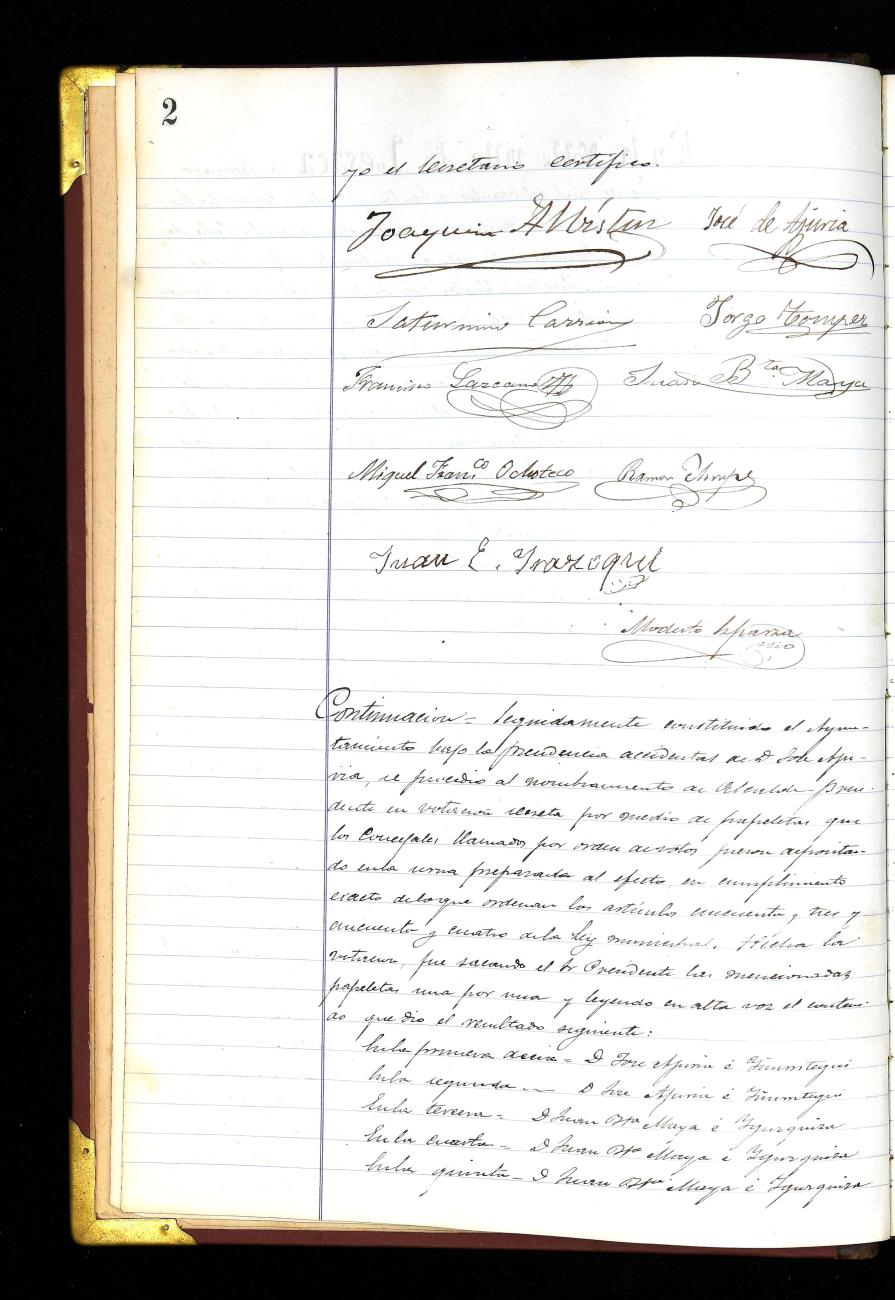 2
yo el Secretario certifico.
Joaquin José de Ajuria
Saturnino Carrion Jorge
Francisco Lazcano Juan Bta Maya
Miguel Franco Ochoteco Ramon
Juan E. Irazoqui
Modesto Esparza
Srio
Continuacion = Seguidamente constituido el Ayun-
tamiento bajo la presidencia accidental de D. Jose Aju-
ria, se procedio al nombramiento de Alcalde-Presi-
dente en votacion secreta por medio de papeletas que
los Concejales llamados por orden de votos fueron depositan-
do en la urna preparada al efecto, en cumplimiento
exacto de lo que ordenan los artículos cincuenta y tres y
cincuenta y cuatro de la ley municipal. Hecha la
votacion, fue sacando el Sr Presidente las mencionadas
papeletas una por una y leyendo en alta voz el conteni-
do que dio el resultado siguiente:
En la primera decia = D Jose Ajuria é
En la segunda = D Jose Ajuria é
En la tercera = D Juan Bta Maya é Ygurquiza
En la cuarta = D Juan Bta Maya é Ygurquiza
En la quinta = D Juan Bta Maya é Ygurquiza